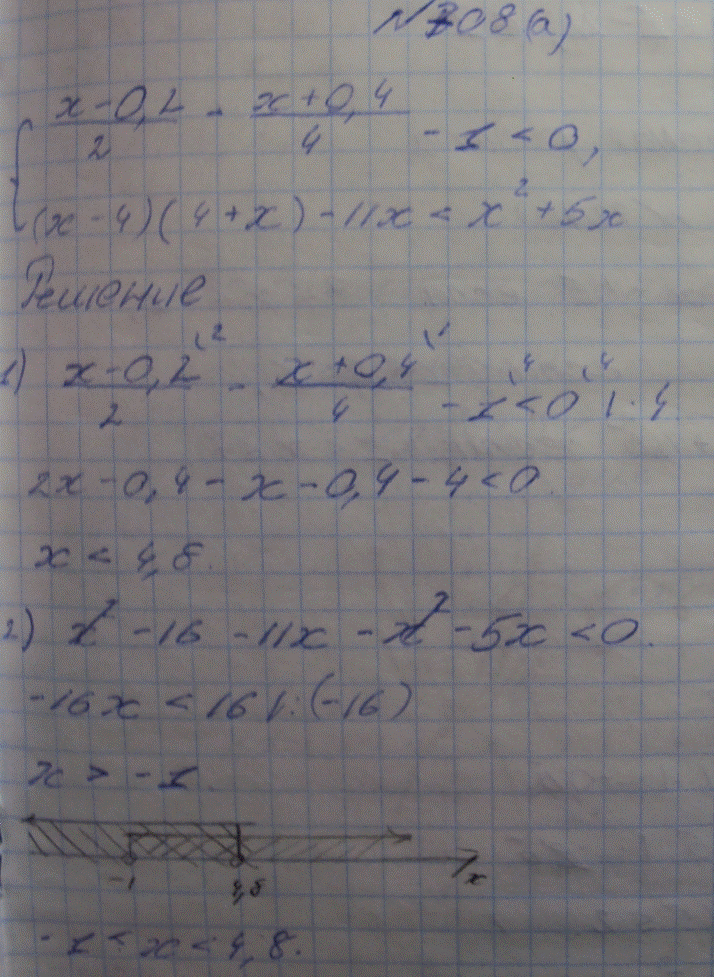 №708(а)
{ (x-0,2)/2 - (x+0,4)/4 - 1 < 0,
(x-4)(4+x) - 11x < x² + 5x
Решение
1) (x-0,2)/2 \² - (x+0,4)/4 \¹ - 1\⁴ < 0\⁴ | · 4
2x - 0,4 - x - 0,4 - 4 < 0.
x < 4,8.
2) x² - 16 - 11x - x² - 5x < 0.
-16x < 16 | : (-16)
x > -1.
-1 4,8 x
-1 < x < 4,8.